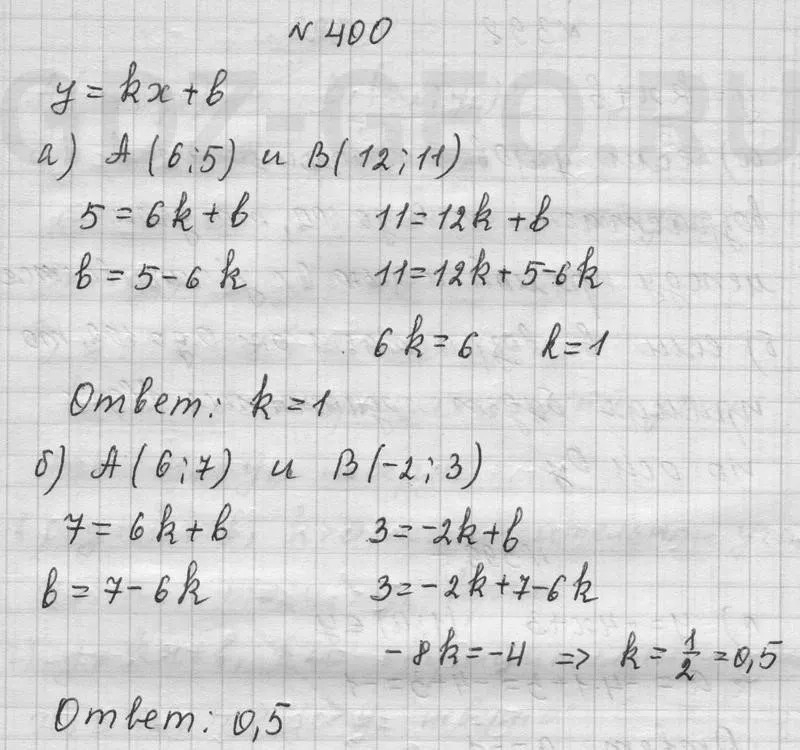 № 400
y = kx + b
а) A (6;5) и B (12;11)
5 = 6k + b 11 = 12k + b
b = 5 - 6k 11 = 12k + 5 - 6k
6k = 6 k = 1
Ответ: k = 1
б) A (6;7) и B (-2;3)
7 = 6k + b 3 = -2k + b
b = 7 - 6k 3 = -2k + 7 - 6k
-8k = -4 => k = 1/2 = 0,5
Ответ: 0,5